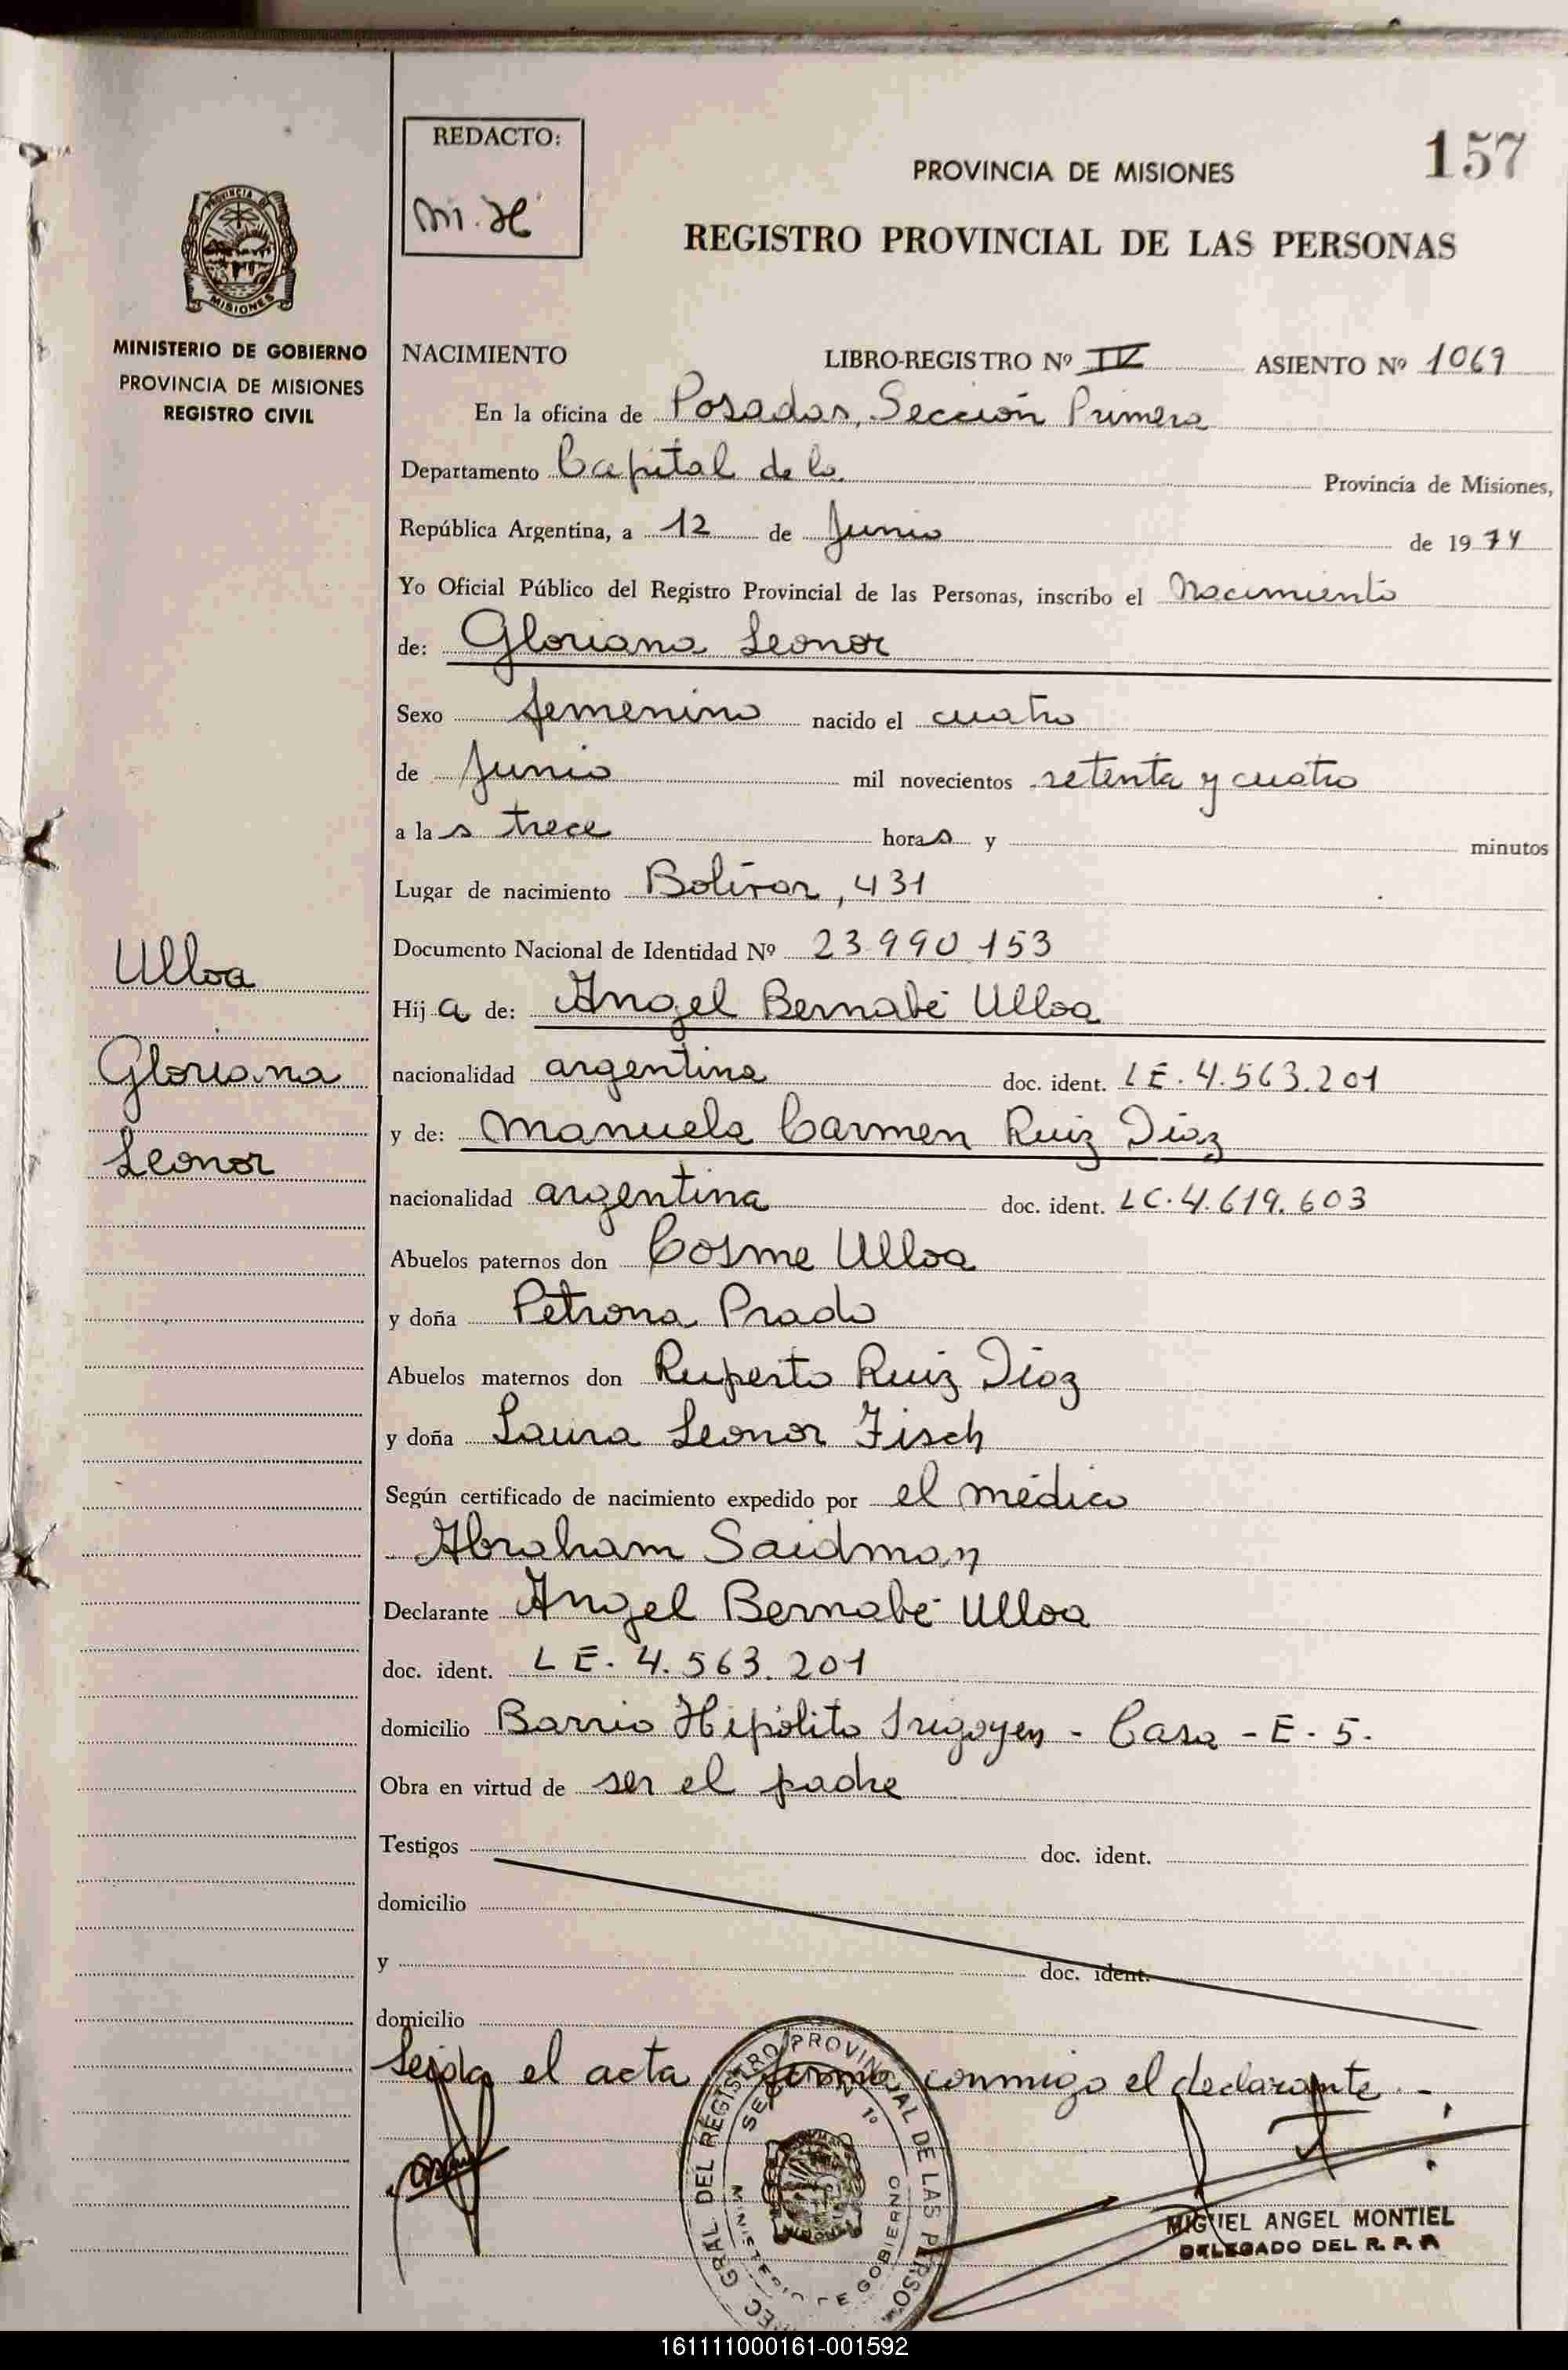 REDACTO:
M. H
157
PROVINCIA DE MISIONES
REGISTRO PROVINCIAL DE LAS PERSONAS
PROVINCIA DE
MISIONES
MINISTERIO DE GOBIERNO
PROVINCIA DE MISIONES
REGISTRO CIVIL
NACIMIENTO LIBRO-REGISTRO Nº IV ASIENTO Nº 1069
En la oficina de Posadas, Sección Primera
Departamento Capital de la Provincia de Misiones,
República Argentina, a 12 de Junio de 1974
Yo Oficial Público del Registro Provincial de las Personas, inscribo el Nacimiento
de: Gloriana Leonor
Sexo femenino nacido el cuatro
de Junio mil novecientos setenta y cuatro
a las trece horas y minutos
Lugar de nacimiento Bolívar, 431
Documento Nacional de Identidad Nº 23.990.153
Ulloa
Gloriana
Leonor
Hija de: Angel Bernabé Ulloa
nacionalidad argentina doc. ident. LE. 4.563.201
y de: Manuela Carmen Ruiz Diaz
nacionalidad argentina doc. ident. LC. 4.619.603
Abuelos paternos don Cosme Ulloa
y doña Petrona Prado
Abuelos maternos don Ruperto Ruiz Diaz
y doña Laura Leonor Fisch
Según certificado de nacimiento expedido por el médico
Abraham Saidman
Declarante Angel Bernabé Ulloa
doc. ident. LE. 4.563.201
domicilio Barrio Hipólito Irigoyen - Casa - E - 5.
Obra en virtud de ser el padre
Testigos doc. ident.
domicilio
y doc. ident.
domicilio
Leída el acta, firma conmigo el declarante. -
GRAL. DEL REGISTRO PROVINCIAL DE LAS PERSO
1º
MINISTERIO DE GOBIERNO
MIGUEL ANGEL MONTIEL
DELEGADO DEL R. P. P.
161111000161-001592